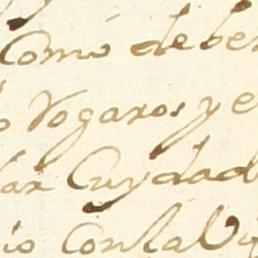 Como deber
o Vogaros, y e
lar Cuydad
io con la Vi